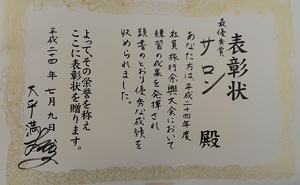 表彰状
最優秀賞
サロン 殿
あなた方は平成二十四年度
社員旅行余興大会において
練習の成果を発揮され
頭書のとおり優秀な成績を
収められました。
よって、その栄誉を称え
ここに表彰状を贈ります。
平成二十四年 七月九日
大平満